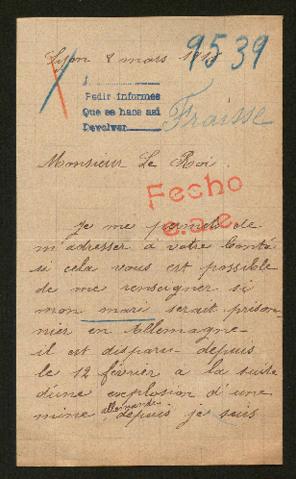 Lyon 8 mars 1915
9539
1
Pedir informes
Que se hace así
Devolver
Fraisse
Monsieur Le Roi
Fecho
Je me permets de
m'adresser à votre Bonté
si cela vous est possible
de me renseigner si
mon mari serait prison-
nier en Allemagne
il est disparu depuis
le 12 février à la suite
d'une explosion d'une
mine allemande, depuis je suis